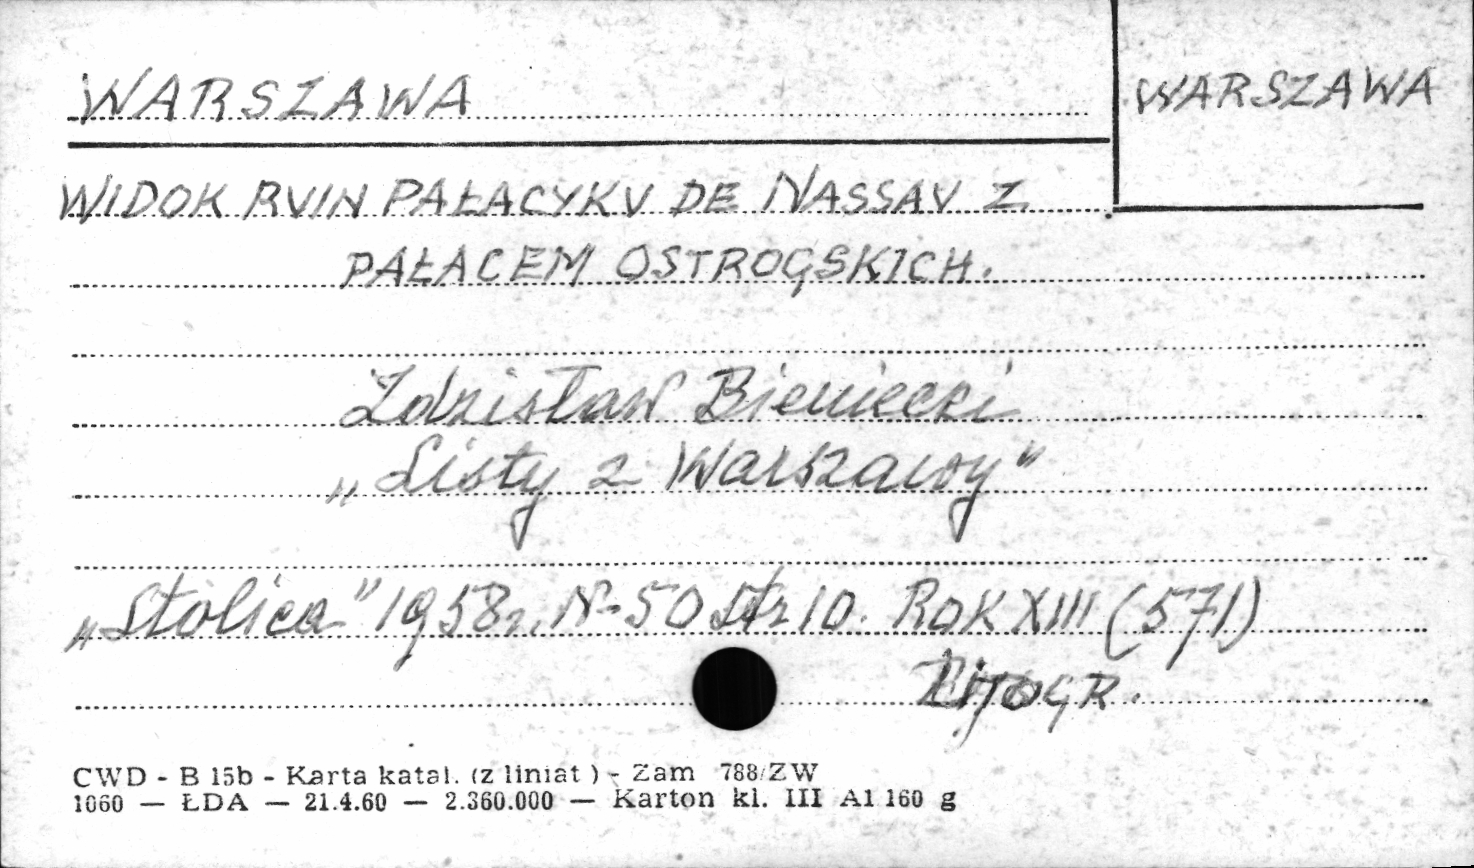 WARSZAWA
WARSZAWA
WIDOK RUIN PAŁACYKU DE NASSAU Z
PAŁACEM OSTROGSKICH.
Zdzisław Bieniecki
„Listy z Warszawy"
„Stolica" 1958r. N-50 str 10. ROK XIII (571)
LITOGR.
CWD - B 15b - Karta katal. (z liniat) - Zam 788/ZW
1060 — ŁDA — 21.4.60 — 2.360.000 — Karton kl. III A1 160 g